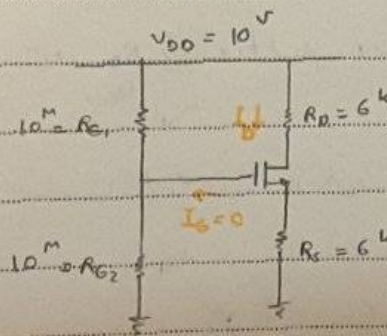 V_DD = 10^V
10^M = R_G1
I_D
R_D = 6^k
I_G = 0
10^M = R_G2
R_S = 6^k